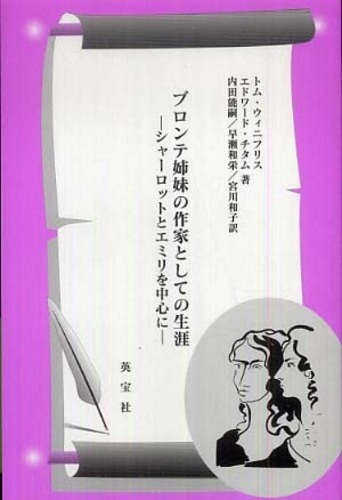 トム・ウィニフリス
エドワード・チタム 著
内田能嗣/早瀬和栄/宮川和子訳
ブロンテ姉妹の作家としての生涯
―シャーロットとエミリを中心に―
英宝社